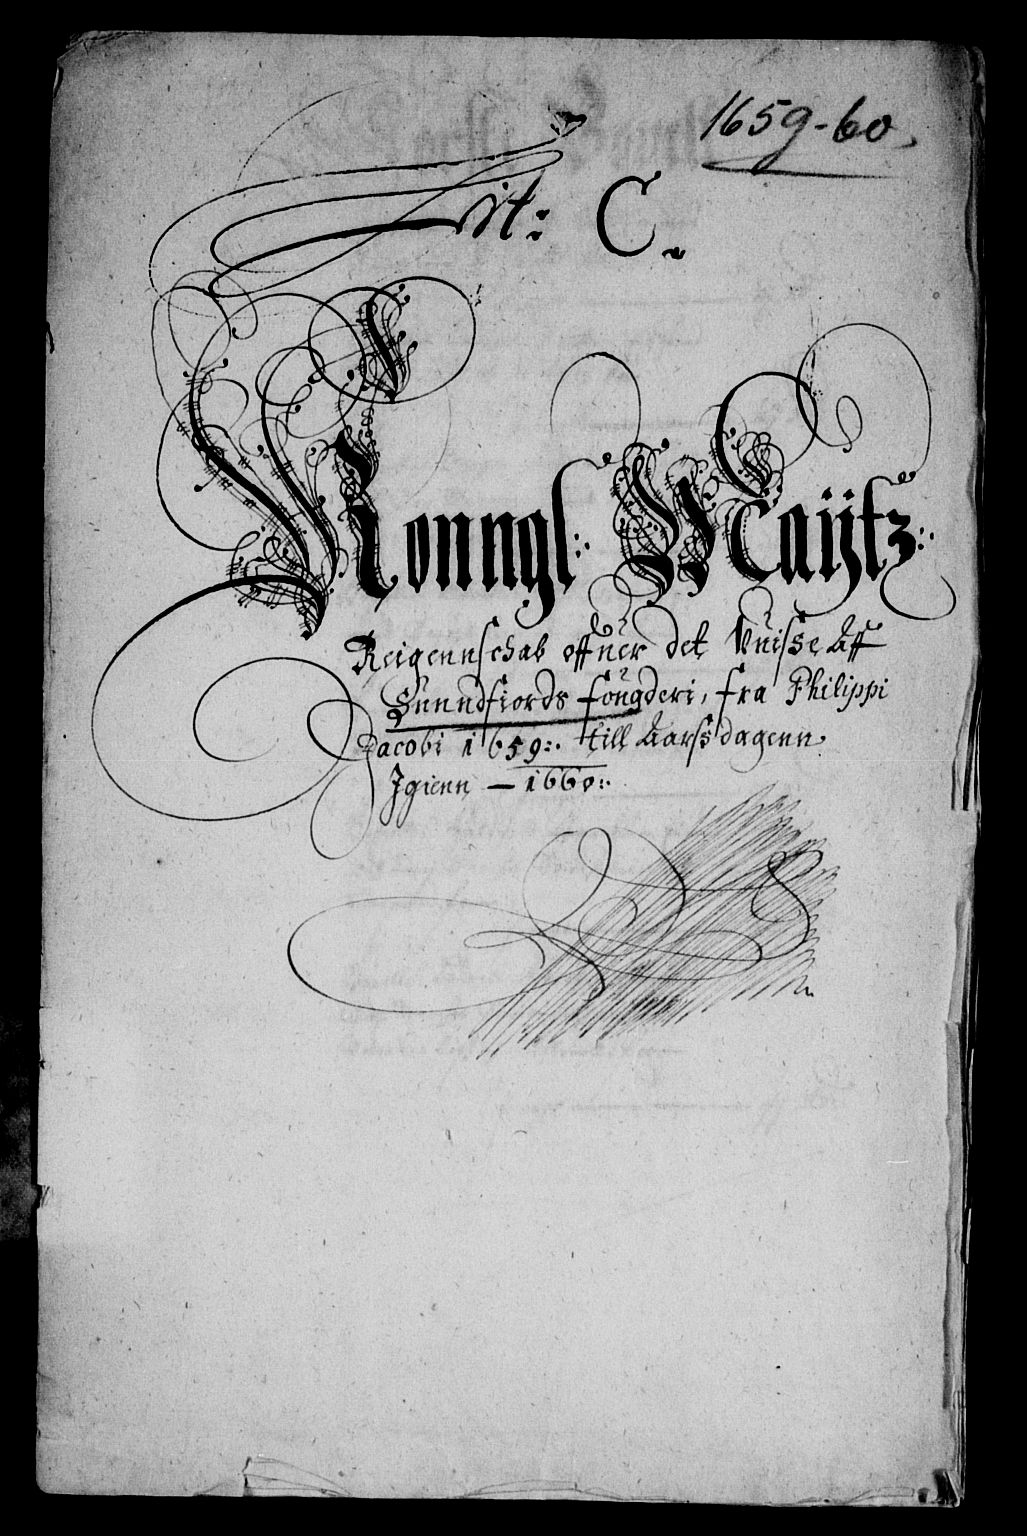 1659-60.
Lit: C.
Konngl: Maÿtz:
Reigennschab offuer det Vuisse Aff
Sunndfiords fougderi, fra Philippi
Jacobi 1659:. till Aarss dagenn
Igienn — 1660:.